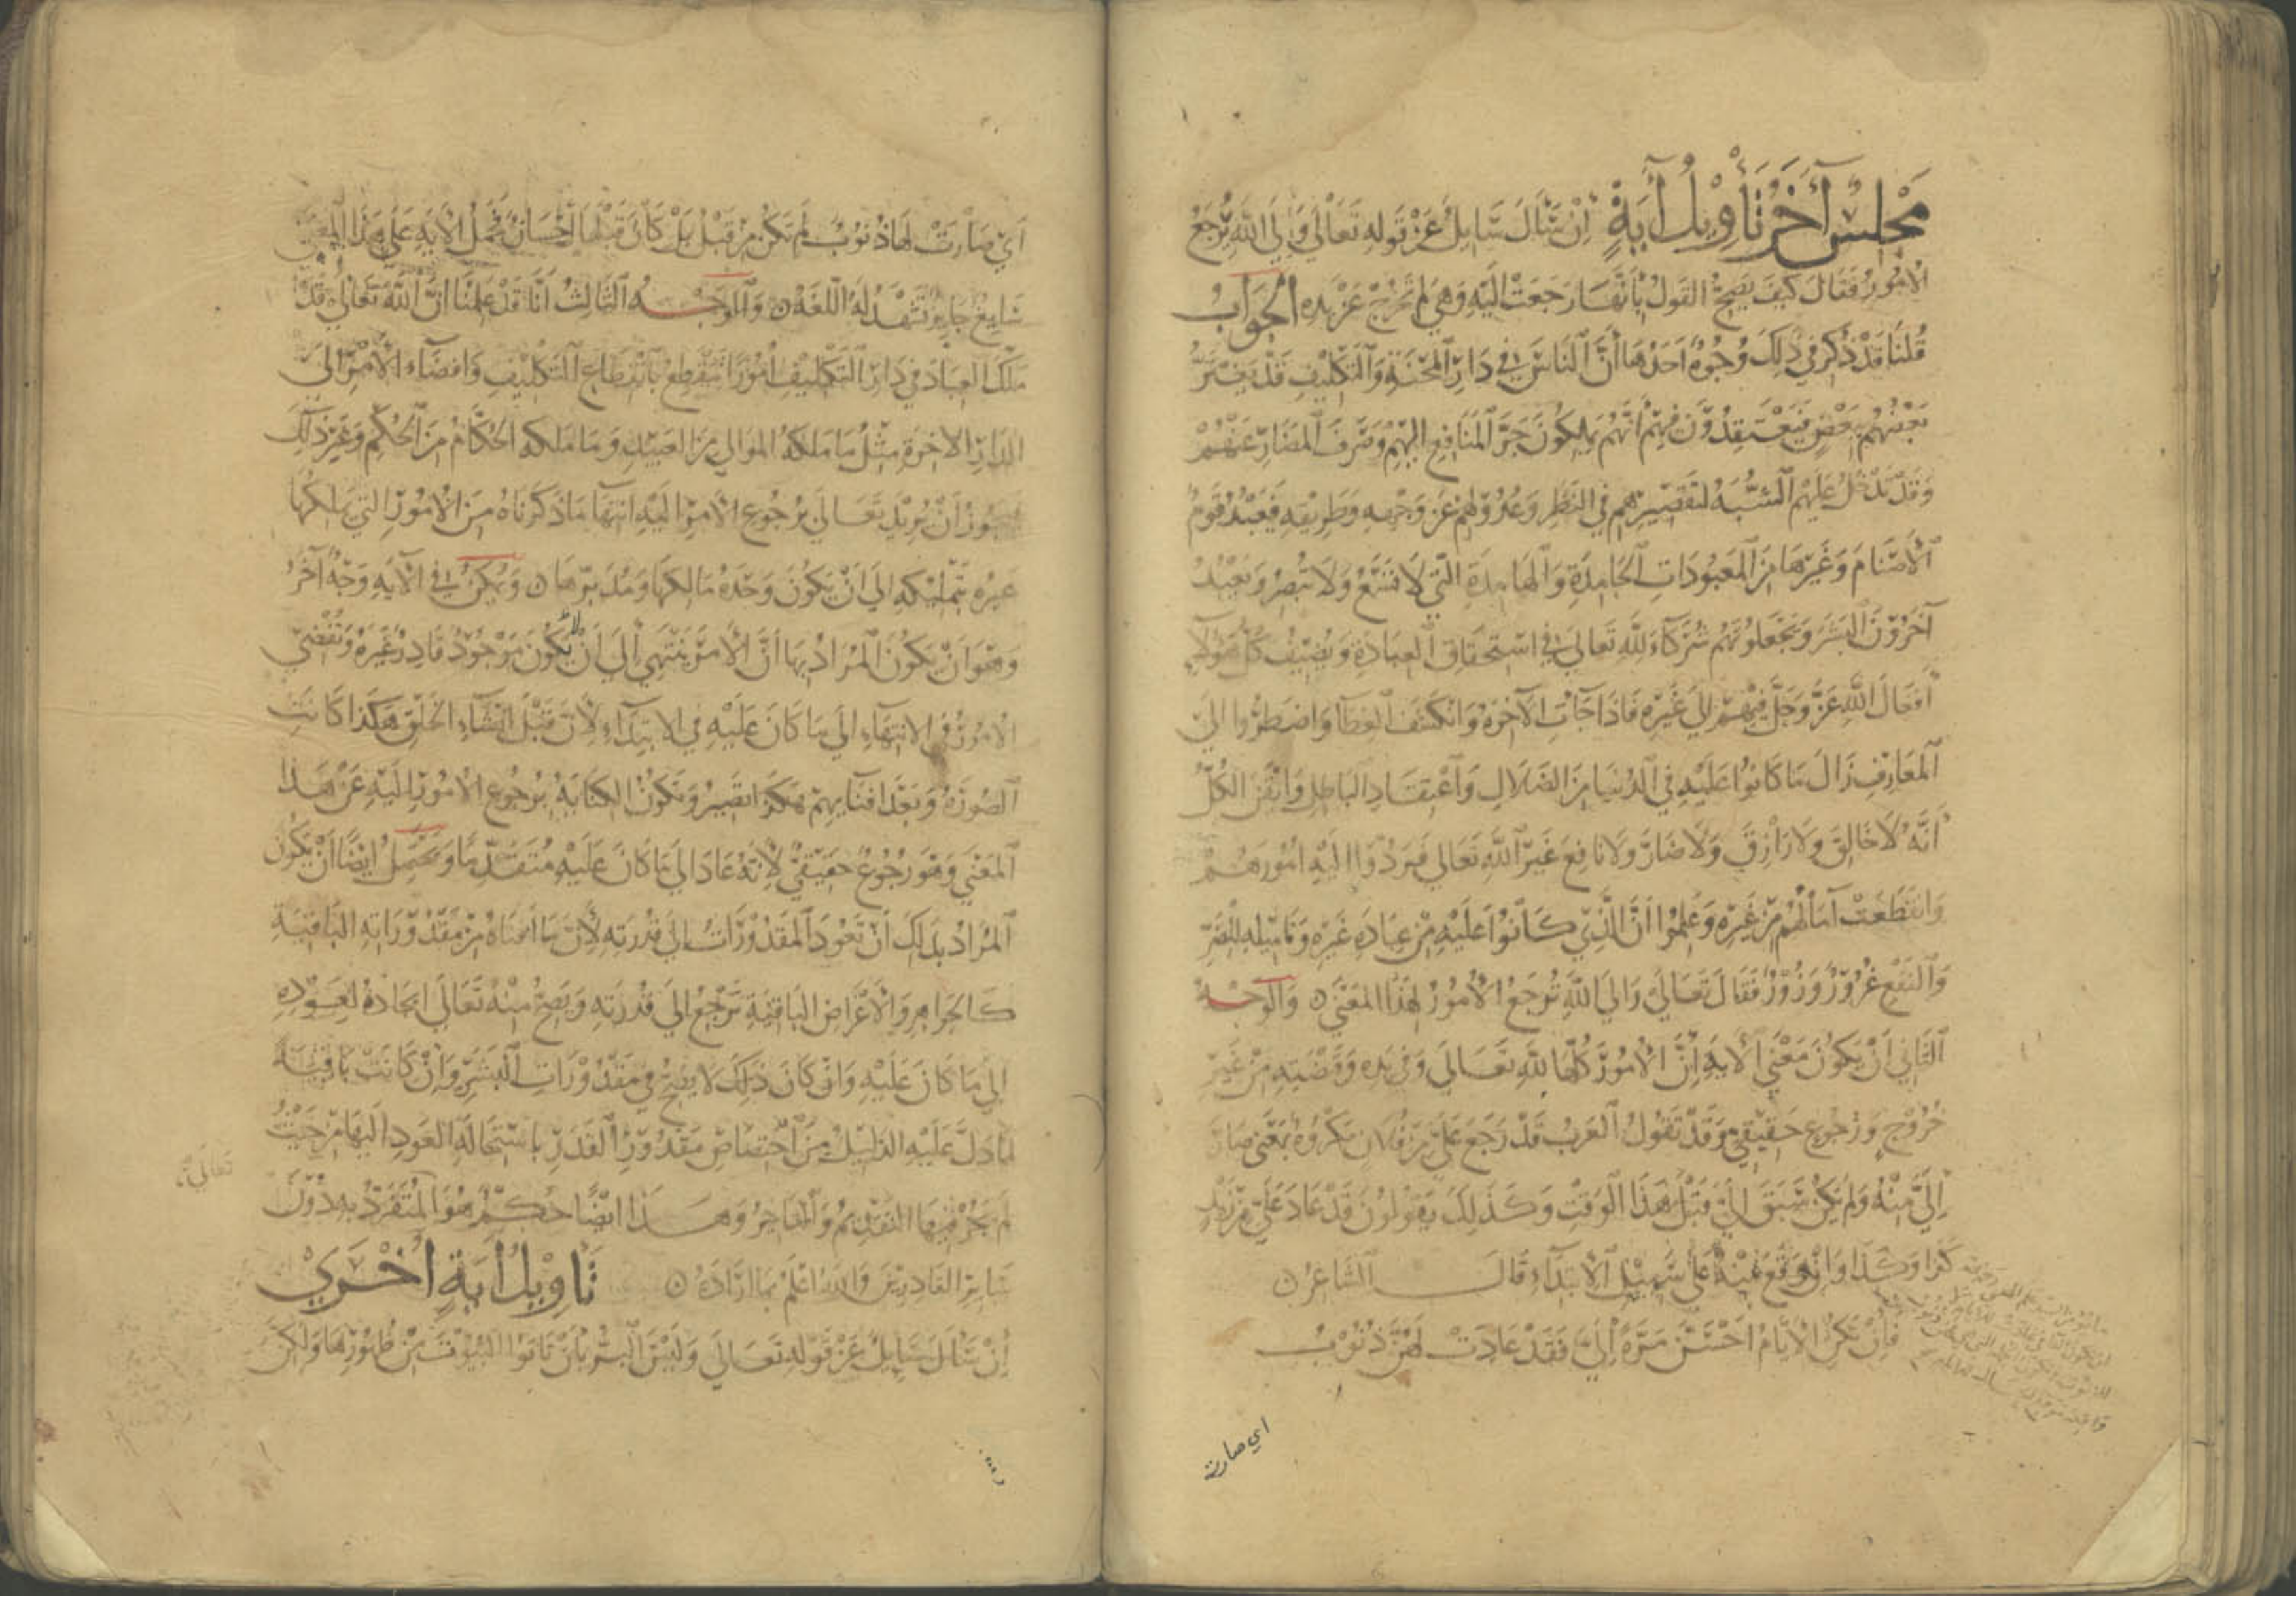 مجلس آخر تأويل آية إن سأل سايل عن قوله تعالى وإلى الله ترجع
الأمور فقال كيف يصح القول بأنها رجعت إليه وهي لم تخرج عن يده الجواب
قلنا قد ذكر في ذلك وجوه أحدها أن الناس في دار المحنة والتكليف قد يغتر
بعضهم ببعض فيعتقدون فيهم أنهم يملكون جر المنافع إليهم وصرف المضار عنهم
وقد تدخل عليهم الشبه لتقصيرهم في النظر وعدولهم عن وجهه وطريقه فيعبد قوم
الأصنام وغيرها من المعبودات الجامدة والهامدة التي لا تسمع ولا تبصر ويعبد
آخرون البشر ويجعلونهم شركاء لله تعالى في استحقاق العبادة ويضيف كل هؤلاء
أفعال الله عز وجل فيهم إلى غيره فإذا جآت الآخرة وانكشف الغطآ واضطروا إلى
المعارف زال ما كانوا عليه في الدنيا من الضلال واعتقاد الباطل وايقن الكل
أنه لا خالق ولا رازق ولا ضار ولا نافع غير الله تعالى فردوا إليه أمورهم
وانقطعت آمالهم من غيره وعلموا أن الذي كانوا عليه من عبادة غيره وتأميله للضر
والنفع غرور وزور فقال تعالى وإلى الله ترجع الأمور لهذا المعنى والوجه
الثاني أن يكون معنى الآية إن الأمور كلها لله تعالى وفي يده وقبضته من غير
خروج ورجوع حقيقي وقد تقول العرب قد رجع علي من فلان مكروه بمعنى صار
إلي منه ولم يكن سبق إلي قبل هذا الوقت وكذلك يقولون قد عاد علي من زيد
كذا وكذا وإن وقع منه على سبيل الابتداء قال الشاعر
فإن تكن الأيام أحسن مرة إلي فقد عادت لهن ذنوب
اي صارت
أي صارت لها ذنوب لم تكن من قبل بل كان قبلها إحسان فحمل الآية على هذا المعنى
شايع جايز تشهد له اللغة والوجه الثالث أنا قد علمنا أن الله تعالى قد
ملك العباد في دار التكليف أمورا تنقطع بانقطاع التكليف وافضاء الأمر إلى
الدار الآخرة مثل ما ملكه الموالي من العبيد وما ملكه الحكام من الحكم وغير ذلك
فيجوز أن يريد تعالى برجوع الأمر إليه انتها ما ذكرناه من الأمور التي يملكها
غيره بتمليكه إلى أن يكون وحده مالكها ومدبرها ويمكن في الآية وجه آخر
وهو أن يكون المراد بها أن الأمر ينتهي إلى أن لا يكون موجود قادر غيره وتفضي
الأمور في الانتهاء إلى ما كان عليه في الابتداء لأن قبل إنشاء الخلق هكذا كانت
الصورة وبعد افنايهم هكذا تصير وتكون الكناية برجوع الأمور إليه عن هذا
المعنى وهو رجوع حقيقي لأنه عاد إلى ما كان عليه متقدما ويحتمل ايضا أن يكون
المراد بذلك أن تعود المقدورات إلى قدرته لأن ما أفناه من مقدوراته الباقية
كالجواهر والأعراض الباقية ترجع إلى قدرته ويصح منه تعالى ايجاده لعوده
إلى ما كان عليه وإن كان ذلك لا يصح في مقدورات البشر وإن كانت باقية
لما دل عليه الدليل من اختصاص مقدور القدر باستحالة العود إليها من حيث
لم يجز فيها التقديم والتأخير وهذا ايضا حكم هو المتفرد به دون
تعالى
ساير القادرين والله اعلم بما اراده تأويل آية أخرى
إن سأل سايل عن قوله تعالى وليس البر بأن تأتوا البيوت من ظهورها ولكن